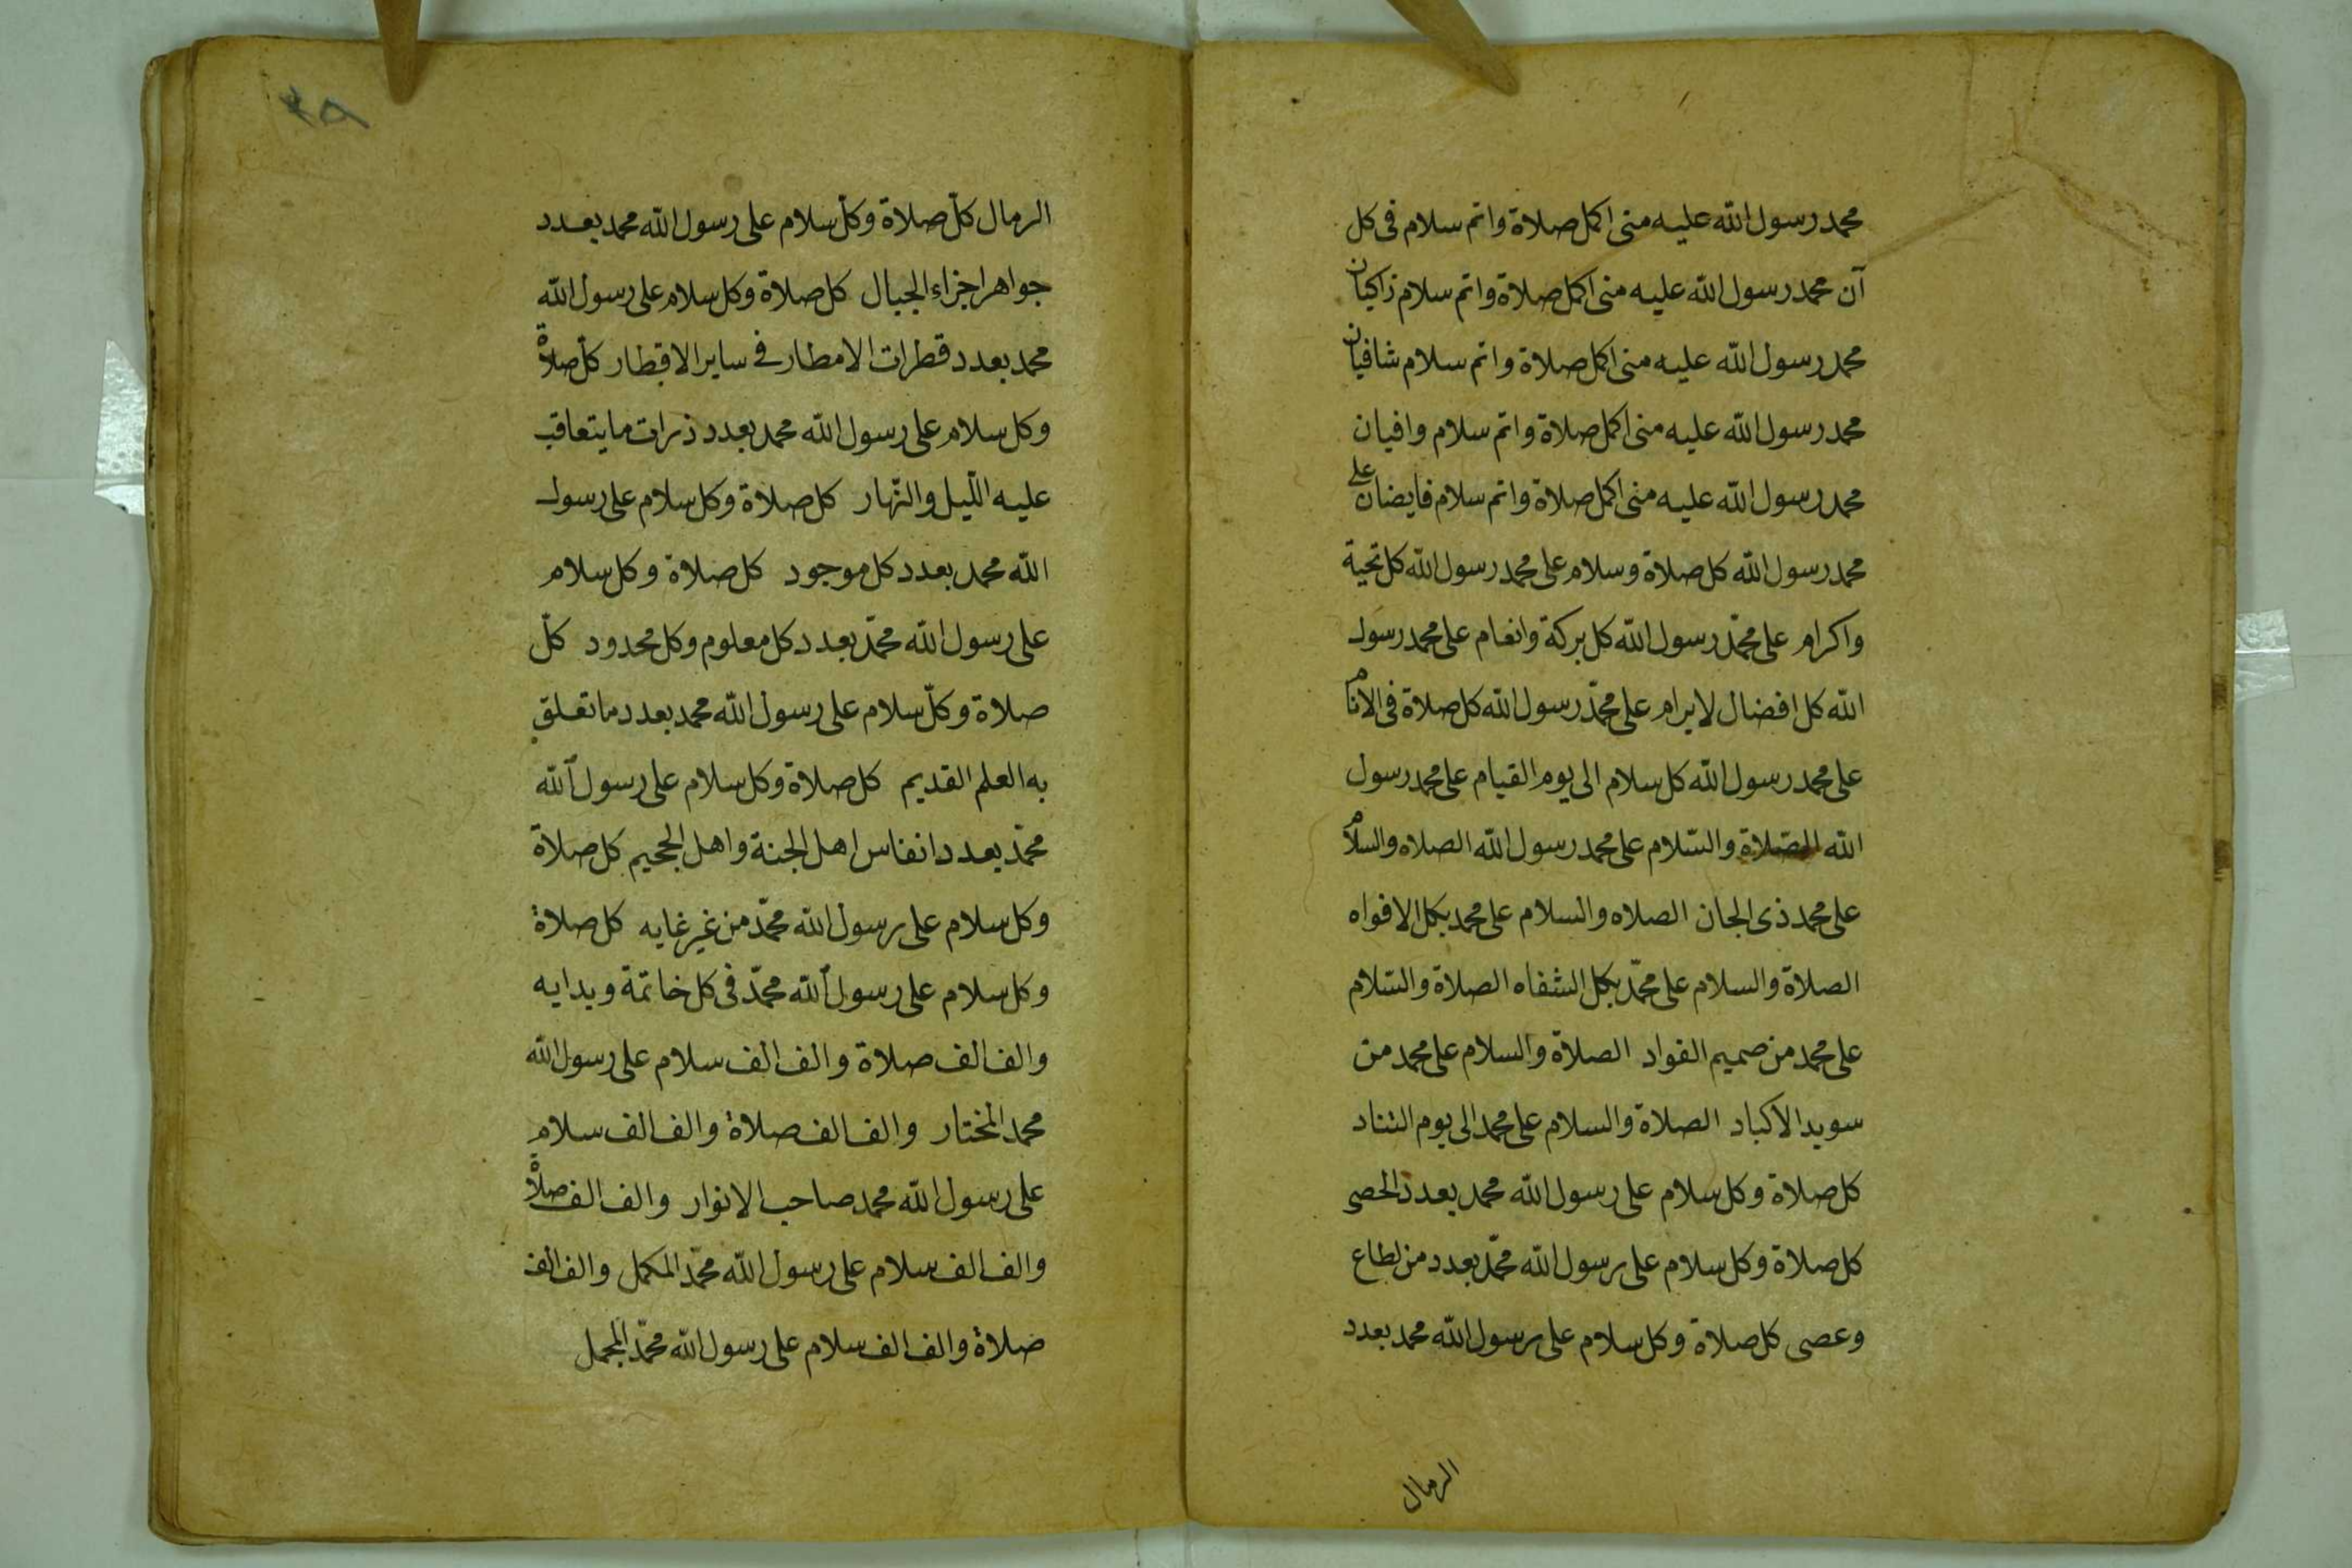 محمد رسول الله عليه منى اكمل صلاة واتم سلام فى كل
آن محمد رسول الله عليه منى اكمل صلاة واتم سلام زاكيان
محمد رسول الله عليه منى اكمل صلاة واتم سلام شافيان
محمد رسول الله عليه منى اكمل صلاة واتم سلام وافيان
محمد رسول الله عليه منى اكمل صلاة واتم سلام فايضان على
محمد رسول الله كل صلاة وسلام على محمد رسول الله كل تحية
واكرام على محمّد رسول الله كل بركة وانعام على محمد رسول
الله كل افضال لابرام على محمّد رسول الله كل صلاة فى الانام
على محمد رسول الله كل سلام الى يوم القيام على محمد رسول
الله الصّلاة والسّلام على محمد رسول الله الصلاه والسلام
على محمد ذى الجان الصلاه والسلام على محمد بكل الافواه
الصلاة والسلام على محمّد بكل الشفاه الصلاة والسّلام
على محمد من صميم الفواد الصلاة والسلام على محمد من
سويد الاكباد الصلاة والسلام على محمد الى يوم التناد
كل صلاة وكل سلام على رسول الله محمد بعدد الحصى
كل صلاة وكل سلام على رسول الله محمّد بعدد من اطاع
وعصى كل صلاة وكل سلام على رسول الله محمد بعدد
الرمال
٣٨
الرمال كلّ صلاة وكلّ سلام على رسول الله محمد بعدد
جواهر اجزاء الجبال كل صلاة وكل سلام على رسول الله
محمد بعدد قطرات الامطار فى ساير الاقطار كلّ صلاة
وكل سلام على رسول الله محمد بعدد ذرات ما يتعاقب
عليه اللّيل والنّهار كل صلاة وكل سلام على رسول
الله محمد بعدد كل موجود كل صلاة وكل سلام
على رسول الله محمّد بعدد كل معلوم وكل محدود كلّ
صلاة وكلّ سلام على رسول الله محمد بعدد ما تعلق
به العلم القديم كل صلاة وكل سلام على رسول الله
محمّد بعدد انفاس اهل الجنة واهل الجحيم كل صلاة
وكل سلام على رسول الله محمّد من غير غايه كل صلاة
وكل سلام على رسول الله محمّد فى كل خاتمة وبدايه
والف الف صلاة والف الف سلام على رسول الله
محمد المختار والف الف صلاة والف الف سلام
على رسول الله محمد صاحب الانوار والف الف صلاة
والف الف سلام على رسول الله محمّد المكمل والف الف
صلاة والف الف سلام على رسول الله محمّد المجمل